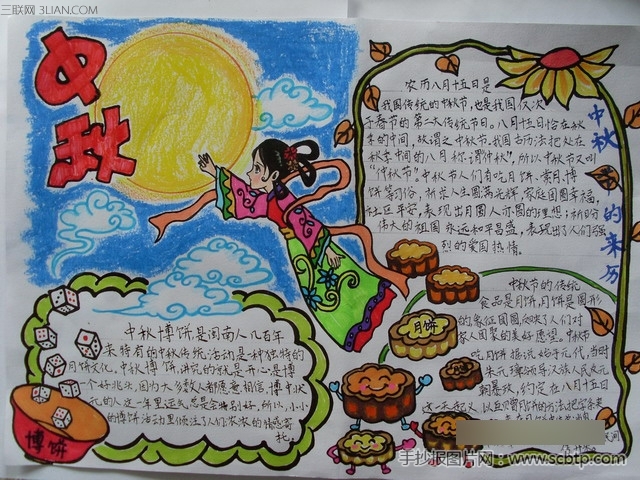 三联网 3LIAN.COM
中秋
农历八月十五日是
我国传统的中秋节,也是我国仅次
于春节的第二大传统节日。八月十五恰在秋
季的中间,故谓之中秋节。我国古历法把处在
秋季中间的八月称谓"仲秋",所以中秋节又叫
"仲秋节"。中秋节人们有吃月饼、赏月、博
饼等习俗,祈求人生圆满光辉,家庭团圆幸福,
社区平安,表现出月圆人亦圆的理想;祈盼
伟大的祖国永远和平昌盛,表现出了人们强
烈的爱国热情。
中秋的来历
中秋节的传统
食品是月饼,月饼是圆形
的,象征团圆,反映了人们对
家人团聚的美好愿望。中秋节
吃月饼据说始于元代,当时
朱元璋领导汉族人民反元
朝暴政,约定在八月十五日
这一天起义
月饼
中秋博饼,是闽南人几百年
来特有的中秋传统活动,是一种独特的
月饼文化。中秋博饼,讲究的就是开心,是博
一个好兆头,因为大多数人都愿意相信,博中状
元的人这一年里运气总是会特别好。所以,小小
的博饼活动里倾注了人们浓浓的情感寄
托。
博饼
手抄报图片网:www.scbtp.com